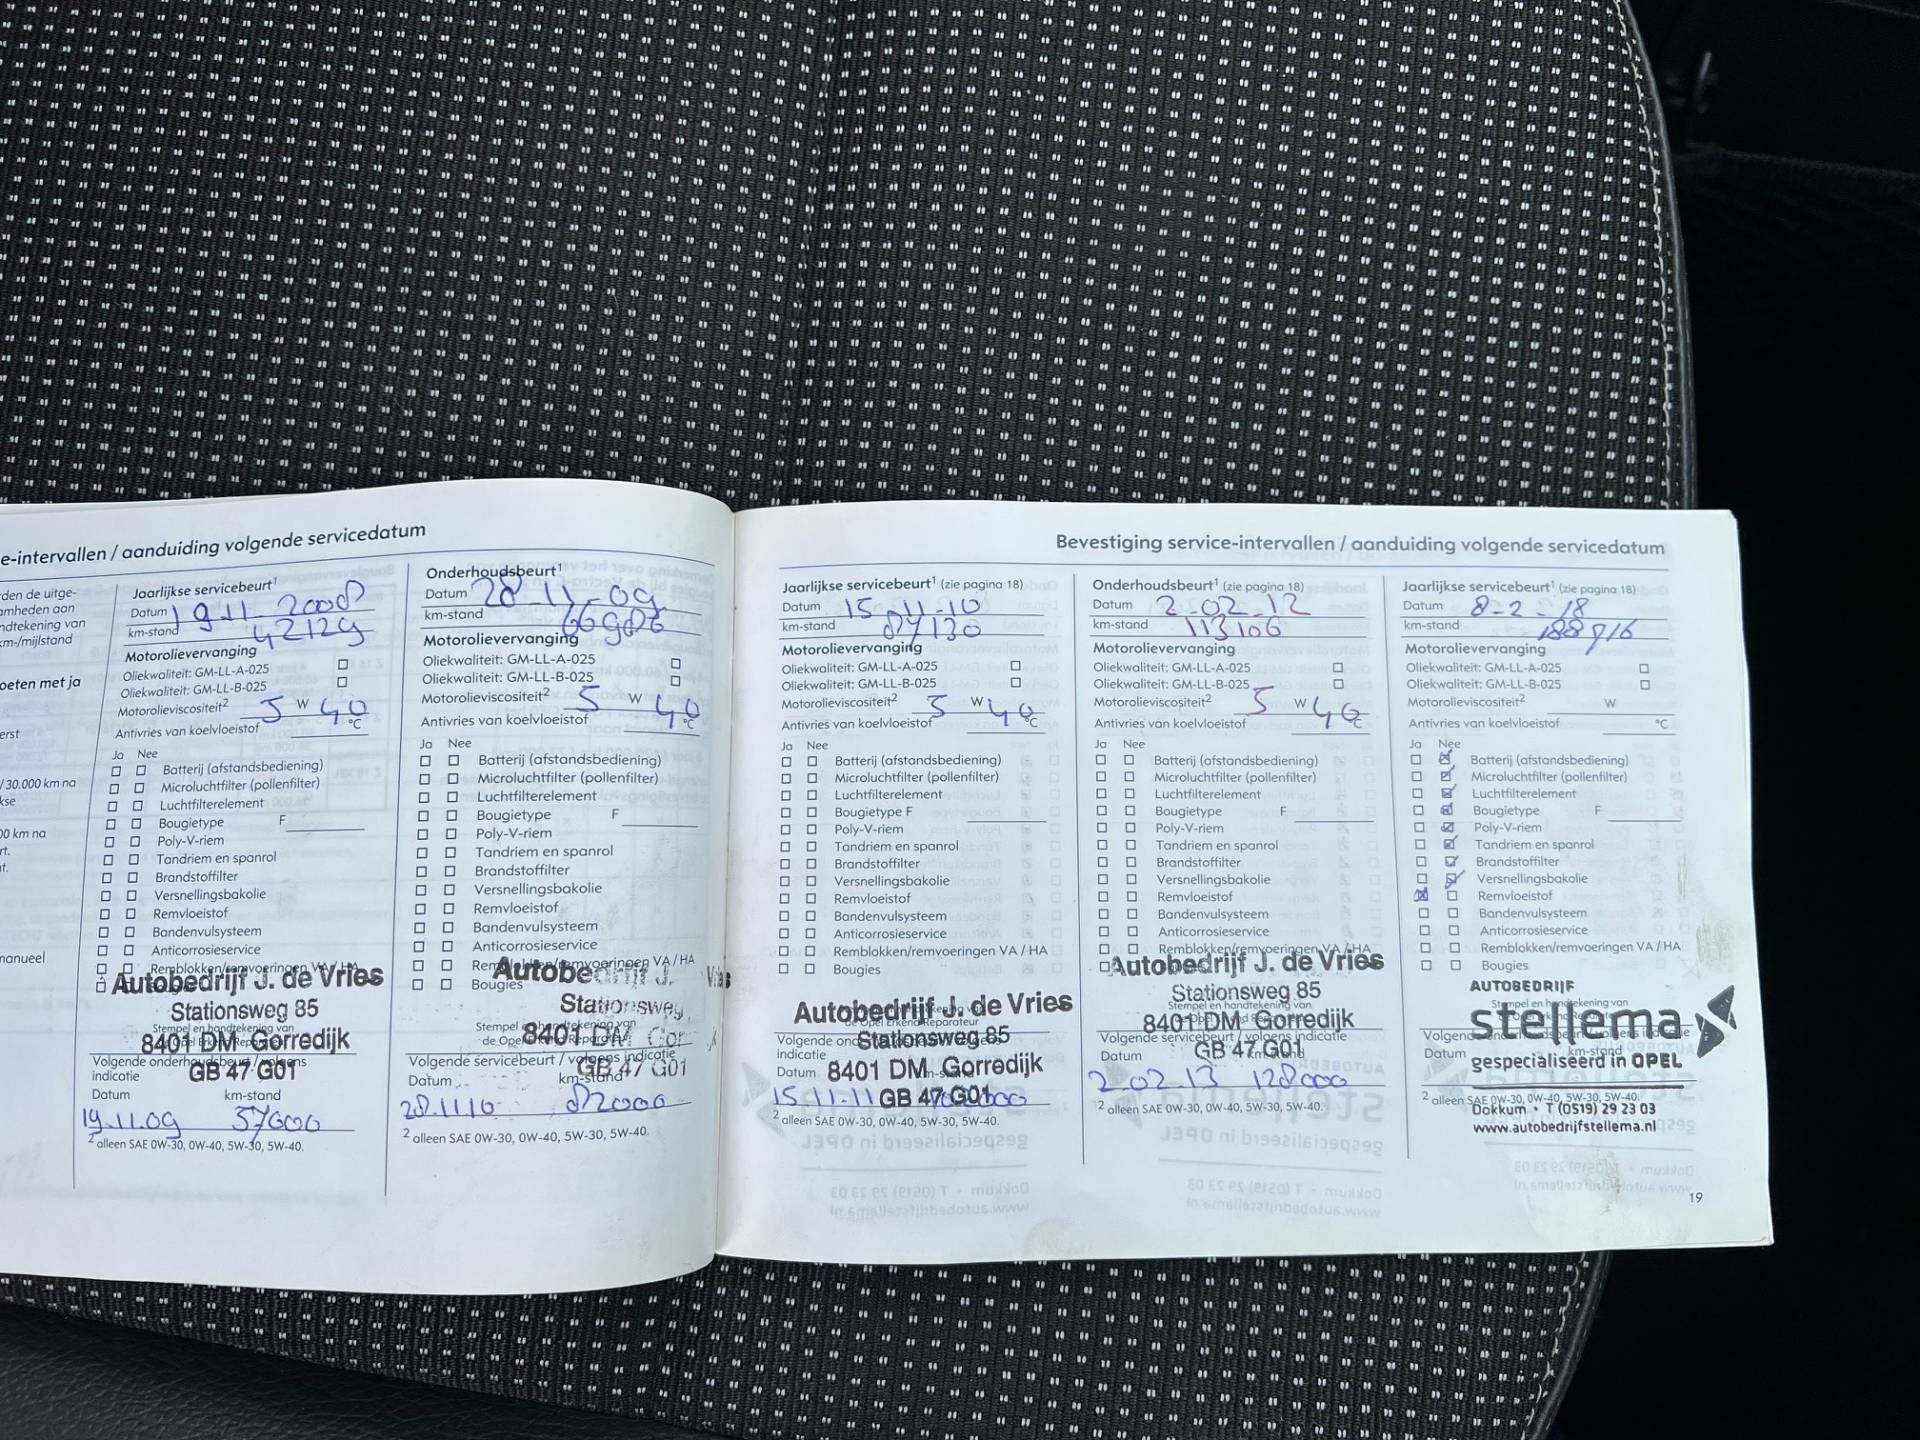 e-intervallen / aanduiding volgende servicedatum
rden de uitge-
amheden aan
ndtekening van
km-/mijlstand
oeten met ja
erst
/ 30.000 km na
kse
00 km na
rt.
t.
manueel
Jaarlijkse servicebeurt¹
Datum 19-11-2008
km-stand 42129
Motorolievervanging
Oliekwaliteit: GM-LL-A-025
Oliekwaliteit: GM-LL-B-025
Motorolieviscositeit² 5 W 40
Antivries van koelvloeistof °C
Ja Nee
Batterij (afstandsbediening)
Microluchtfilter (pollenfilter)
Luchtfilterelement
Bougietype F
Poly-V-riem
Tandriem en spanrol
Brandstoffilter
Versnellingsbakolie
Remvloeistof
Bandenvulsysteem
Anticorrosieservice
Remblokken/remvoeringen VA / HA
Autobedrijf J. de Vries
Stationsweg 85
Stempel en handtekening van
8401 DM Gorredijk
Volgende onderhoudsbeurt / volgens
indicatie
GB 47 G01
Datum km-stand
19.11.09 57000
² alleen SAE 0W-30, 0W-40, 5W-30, 5W-40.
Onderhoudsbeurt¹
Datum 28 11-09
km-stand
Motorolievervanging
Oliekwaliteit: GM-LL-A-025
Oliekwaliteit: GM-LL-B-025
Motorolieviscositeit² 5 W 40
Antivries van koelvloeistof °C
Ja Nee
Batterij (afstandsbediening)
Microluchtfilter (pollenfilter)
Luchtfilterelement
Bougietype F
Poly-V-riem
Tandriem en spanrol
Brandstoffilter
Versnellingsbakolie
Remvloeistof
Bandenvulsysteem
Anticorrosieservice
Remblokken/remvoeringen VA / HA
Bougies
Autobedrijf J. Vries
Stationsweg
Stempel en handtekening van
de Opel Erkend Reparateur
8401 DM Gor
Volgende servicebeurt / volgens indicatie
GB 47 G01
Datum km-stand
28.11.10 82000
² alleen SAE 0W-30, 0W-40, 5W-30, 5W-40.
Bevestiging service-intervallen / aanduiding volgende servicedatum
Jaarlijkse servicebeurt¹ (zie pagina 18)
Datum 15-11-10
km-stand 87130
Motorolievervanging
Oliekwaliteit: GM-LL-A-025
Oliekwaliteit: GM-LL-B-025
Motorolieviscositeit² 5 W 40
Antivries van koelvloeistof °C
Ja Nee
Batterij (afstandsbediening)
Microluchtfilter (pollenfilter)
Luchtfilterelement
Bougietype F
Poly-V-riem
Tandriem en spanrol
Brandstoffilter
Versnellingsbakolie
Remvloeistof
Bandenvulsysteem
Anticorrosieservice
Remblokken/remvoeringen VA / HA
Bougies
Autobedrijf J. de Vries
de Opel Erkend Reparateur
Stationsweg 85
indicatie
Datum
8401 DM Gorredijk
GB 47 G01
15-11-11
² alleen SAE 0W-30, 0W-40, 5W-30, 5W-40.
Onderhoudsbeurt¹ (zie pagina 18)
Datum 2-02-12
km-stand 113106
Motorolievervanging
Oliekwaliteit: GM-LL-A-025
Oliekwaliteit: GM-LL-B-025
Motorolieviscositeit² 5 W 40
Antivries van koelvloeistof °C
Ja Nee
Batterij (afstandsbediening)
Microluchtfilter (pollenfilter)
Luchtfilterelement
Bougietype F
Poly-V-riem
Tandriem en spanrol
Brandstoffilter
Versnellingsbakolie
Remvloeistof
Bandenvulsysteem
Anticorrosieservice
Remblokken/remvoeringen VA / HA
Autobedrijf J. de Vries
Stationsweg 85
Stempel en handtekening van
8401 DM Gorredijk
Volgende servicebeurt / volgens indicatie
Datum
GB 47 G01
2-02.13 128000
² alleen SAE 0W-30, 0W-40, 5W-30, 5W-40.
Jaarlijkse servicebeurt¹ (zie pagina 18)
Datum 8-2-18
km-stand
Motorolievervanging
Oliekwaliteit: GM-LL-A-025
Oliekwaliteit: GM-LL-B-025
Motorolieviscositeit² W
Antivries van koelvloeistof °C
Ja Nee
Batterij (afstandsbediening)
Microluchtfilter (pollenfilter)
Luchtfilterelement
Bougietype F
Poly-V-riem
Tandriem en spanrol
Brandstoffilter
Versnellingsbakolie
Remvloeistof
Bandenvulsysteem
Anticorrosieservice
Remblokken/remvoeringen VA / HA
Bougies
AUTOBEDRIJF
Stempel en handtekening van
stellema
Datum km-stand
gespecialiseerd in OPEL
² alleen SAE 0W-30, 0W-40, 5W-30, 5W-40.
Dokkum • T (0519) 29 23 03
www.autobedrijfstellema.nl
19